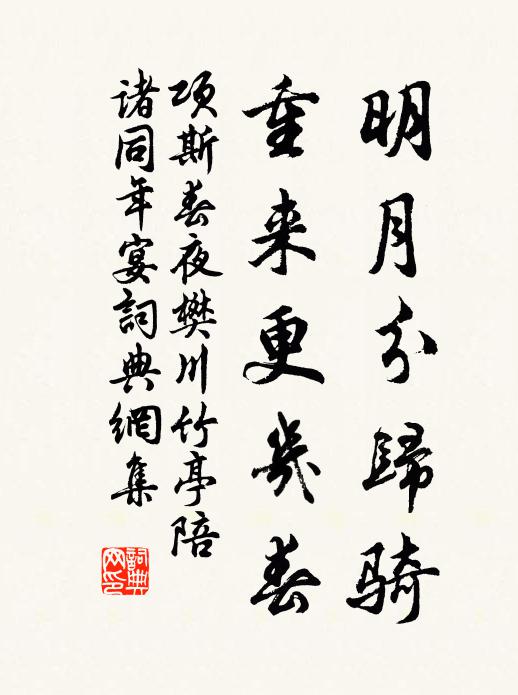 明月分歸騎
重来更幾春
項斯春夜樊川竹亭陪
諸同年宴詞典網集
詞典网印